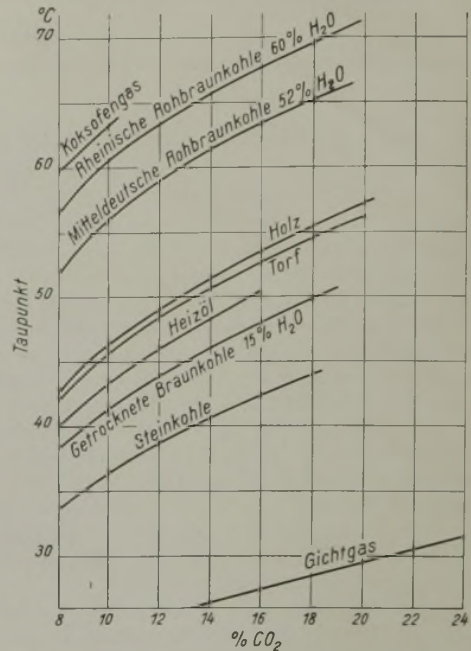 °C
70
60
50
40
30
Taupunkt
Koksofengas
Rheinische Rohbraunkohle 60% H₂O
Mitteldeutsche Rohbraunkohle 52% H₂O
Holz
Torf
Heizöl
Getrocknete Braunkohle 15% H₂O
Steinkohle
Gichtgas
8 10 12 14 16 18 20 22 24
% CO₂